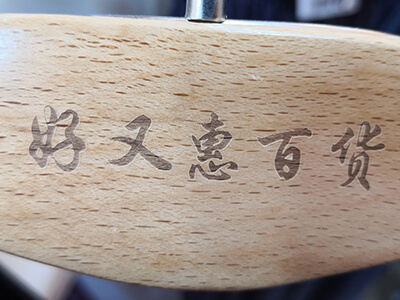 好又惠百货